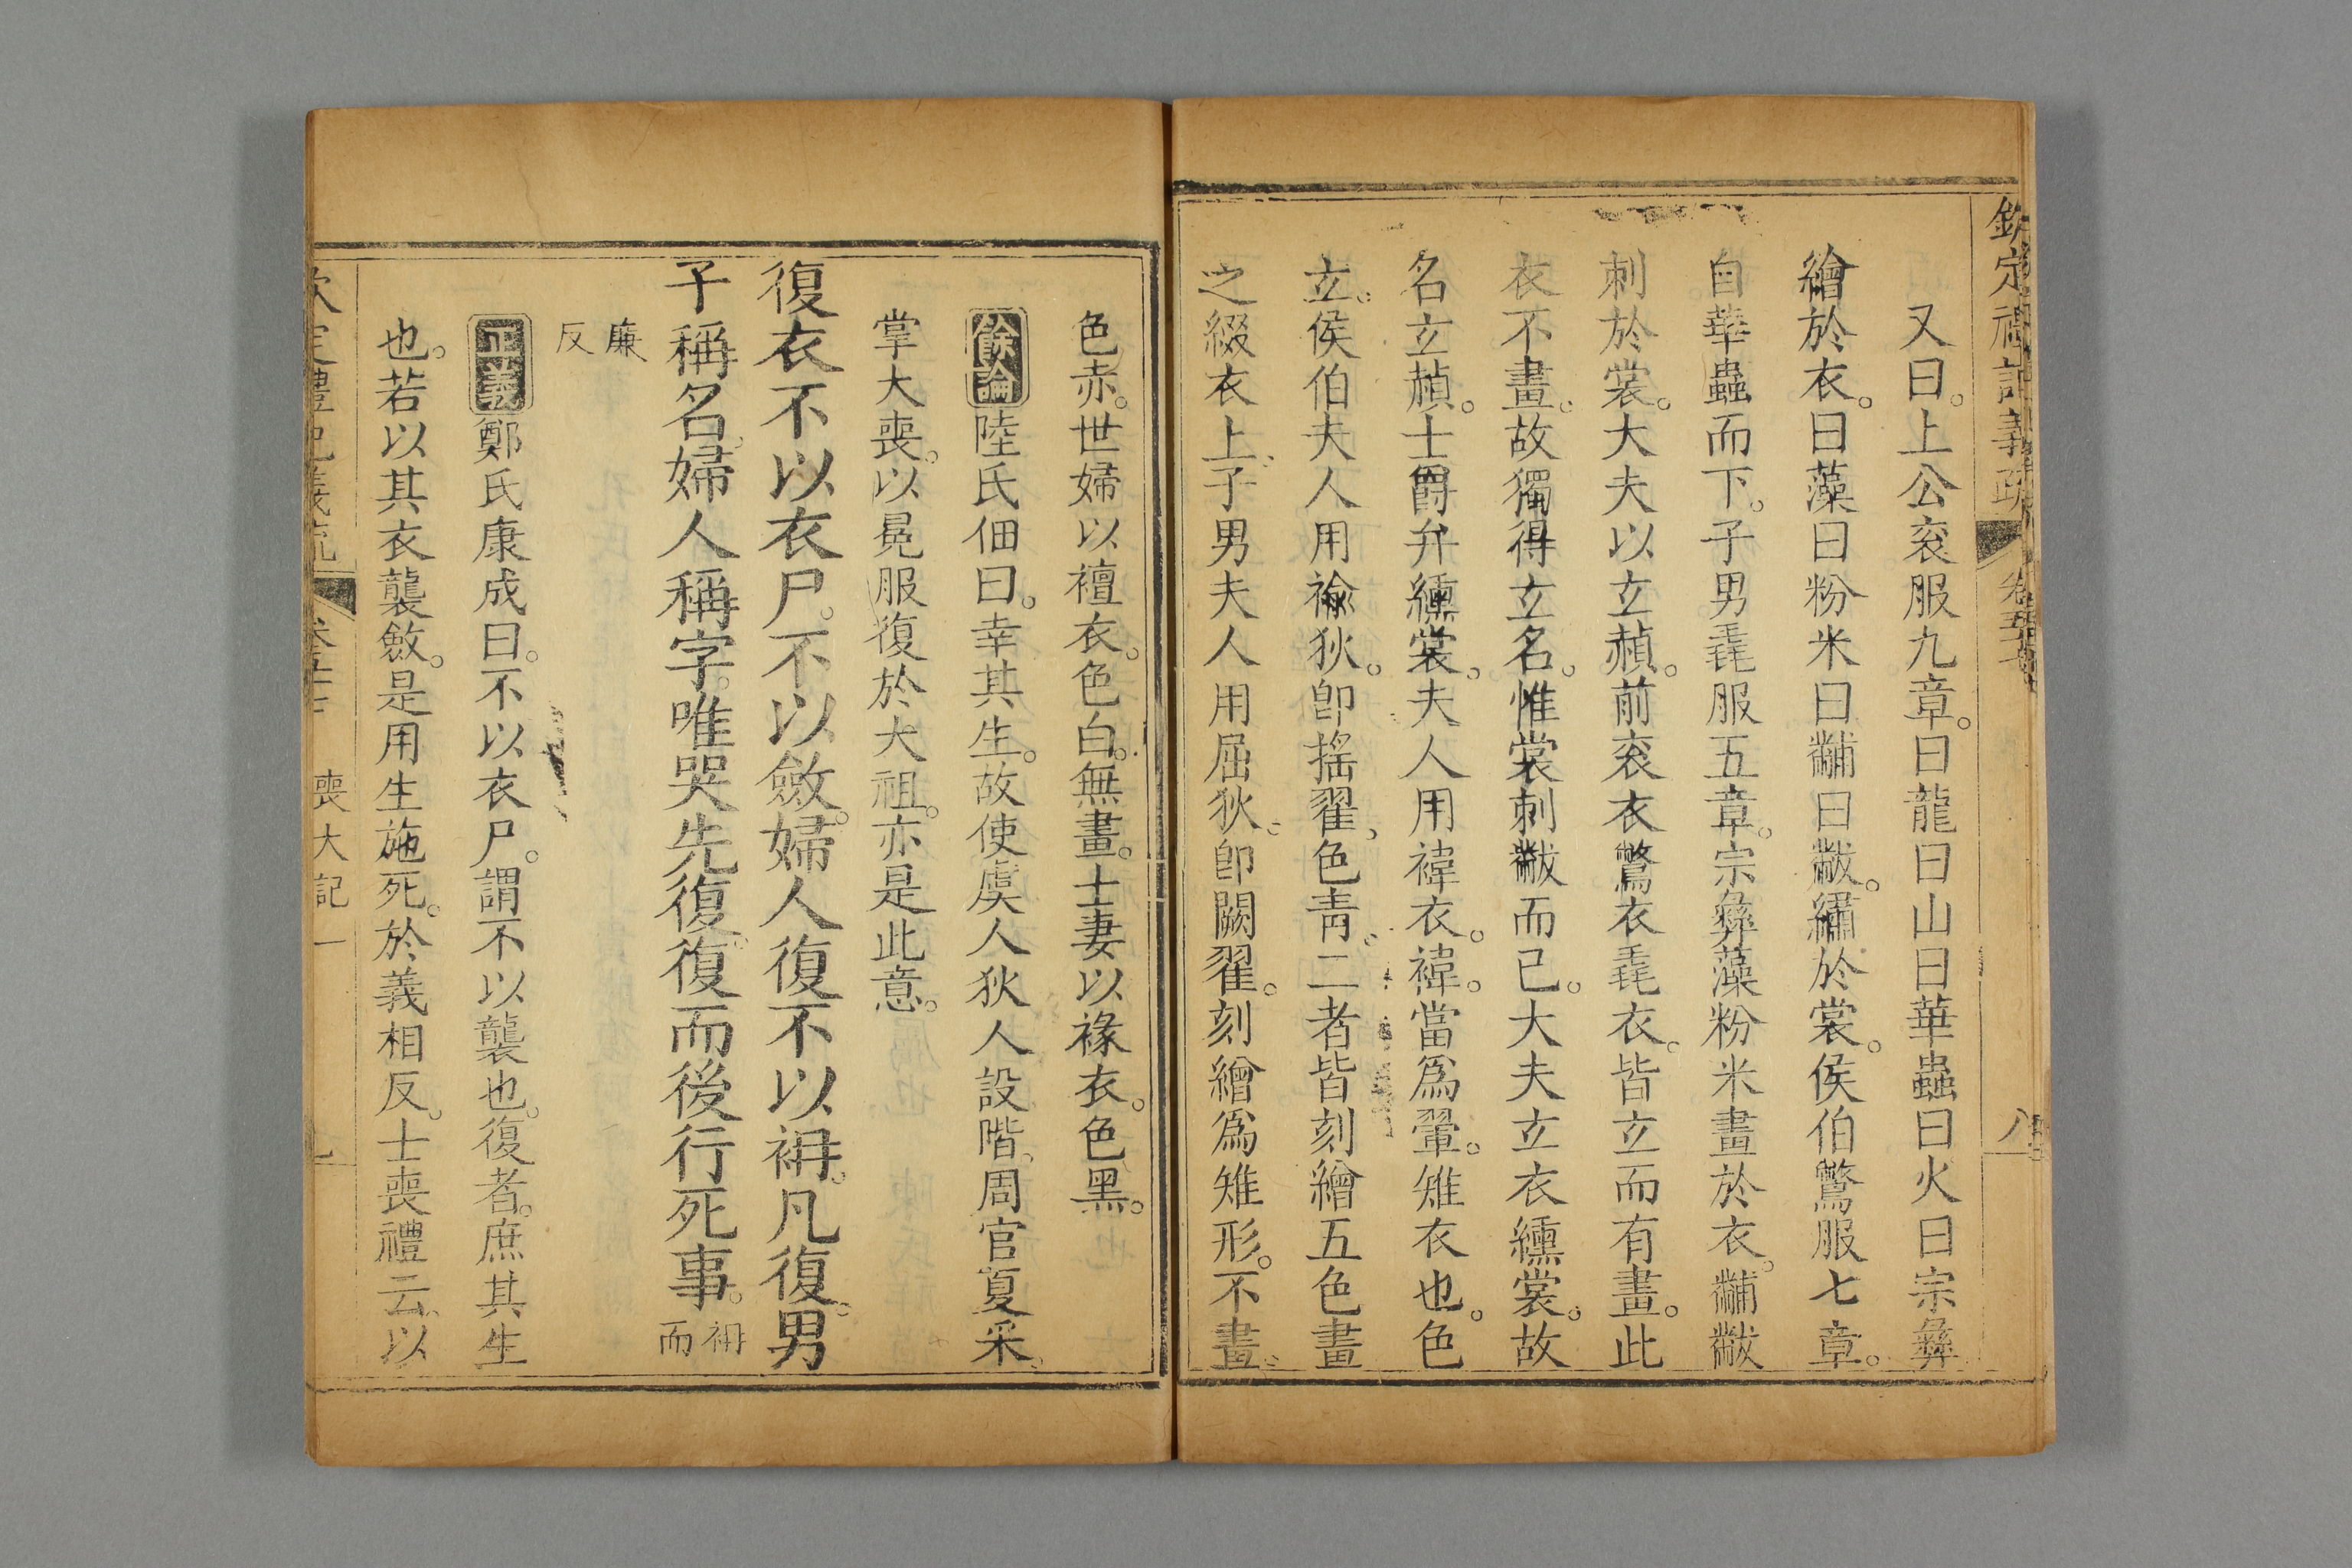 欽定禮記義疏 卷五十七 八
又曰。上公衮服九章。曰龍曰山曰華蟲曰火曰宗彝
繪於衣。曰藻曰粉米曰黼曰黻。繡於裳。侯伯鷩服七章。
自華蟲而下。子男毳服五章。宗彝藻粉米畫於衣。黼黻
刺於裳。大夫以玄赬。前衮衣鷩衣毳衣。皆玄而有畫。此
衣不畫。故獨得玄名。惟裳刺黻而已。大夫玄衣纁裳。故
名玄赬。士爵弁纁裳。夫人用褘衣。褘。當爲翬。雉衣也。色
玄。侯伯夫人用褕狄。卽搖翟。色靑。二者皆刻繒五色畫
之綴衣上。子男夫人用屈狄。卽闕翟。刻繒爲雉形。不畫。
色赤。世婦以襢衣。色白。無畫。士妻以褖衣。色黑。
餘論 陸氏佃曰。幸其生。故使虞人狄人設階。周官夏采。
掌大喪。以冕服復於大祖。亦是此意。
復衣不以衣尸。不以斂。婦人復不以袡。凡復。男
子稱名。婦人稱字。唯哭先復。復而後行死事。袡而
廉反
正義 鄭氏康成曰。不以衣尸。謂不以襲也。復者。庶其生
也。若以其衣襲斂。是用生施死。於義相反。士喪禮云。以
定禮記義疏 喪大記一